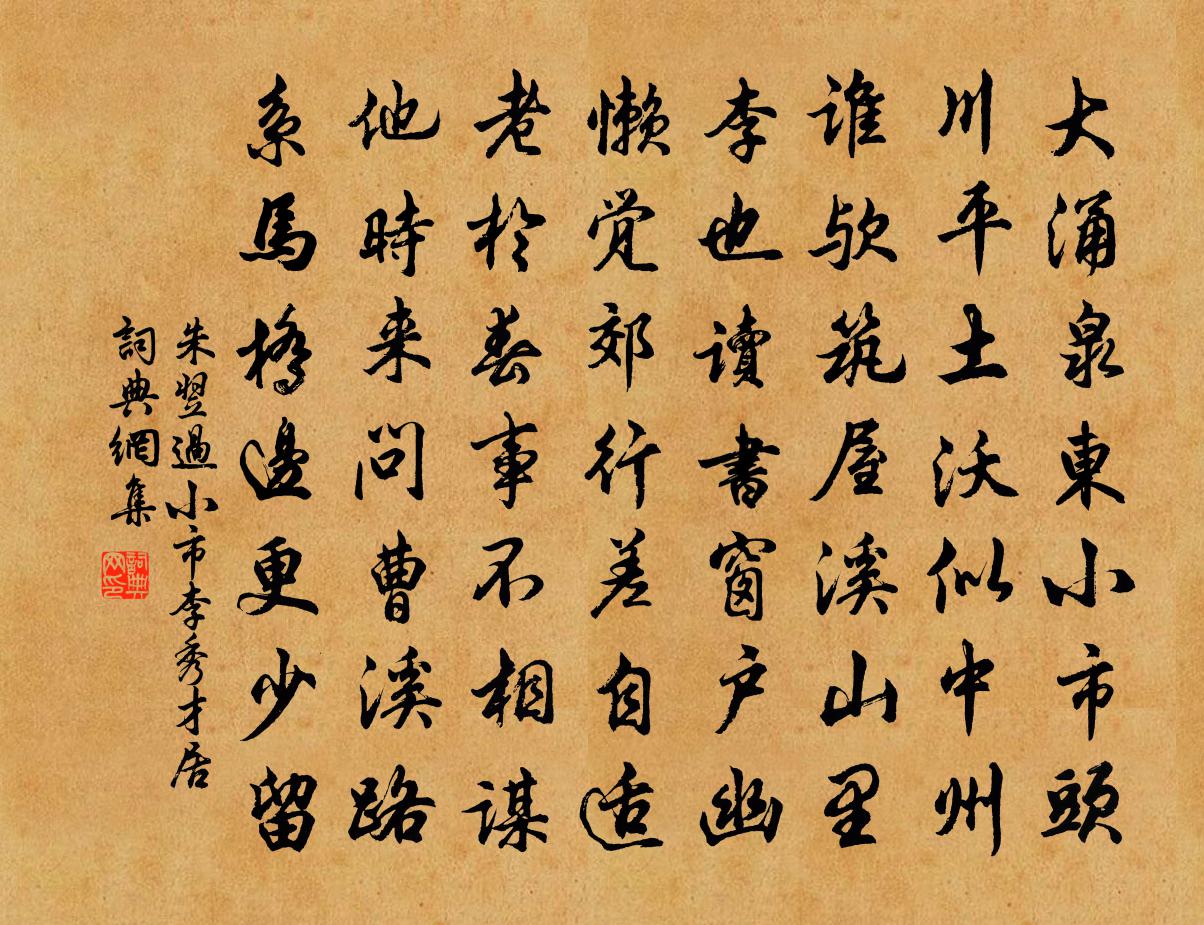 大涌泉東小市頭
川平土沃似中州
谁欤筑屋溪山里
李也讀書窗户幽
懒觉郊行差自适
老於春事不相謀
他時来問曹溪路
系馬橋邊更少留
朱翌過小市李秀才居
詞典網集
詞典網印